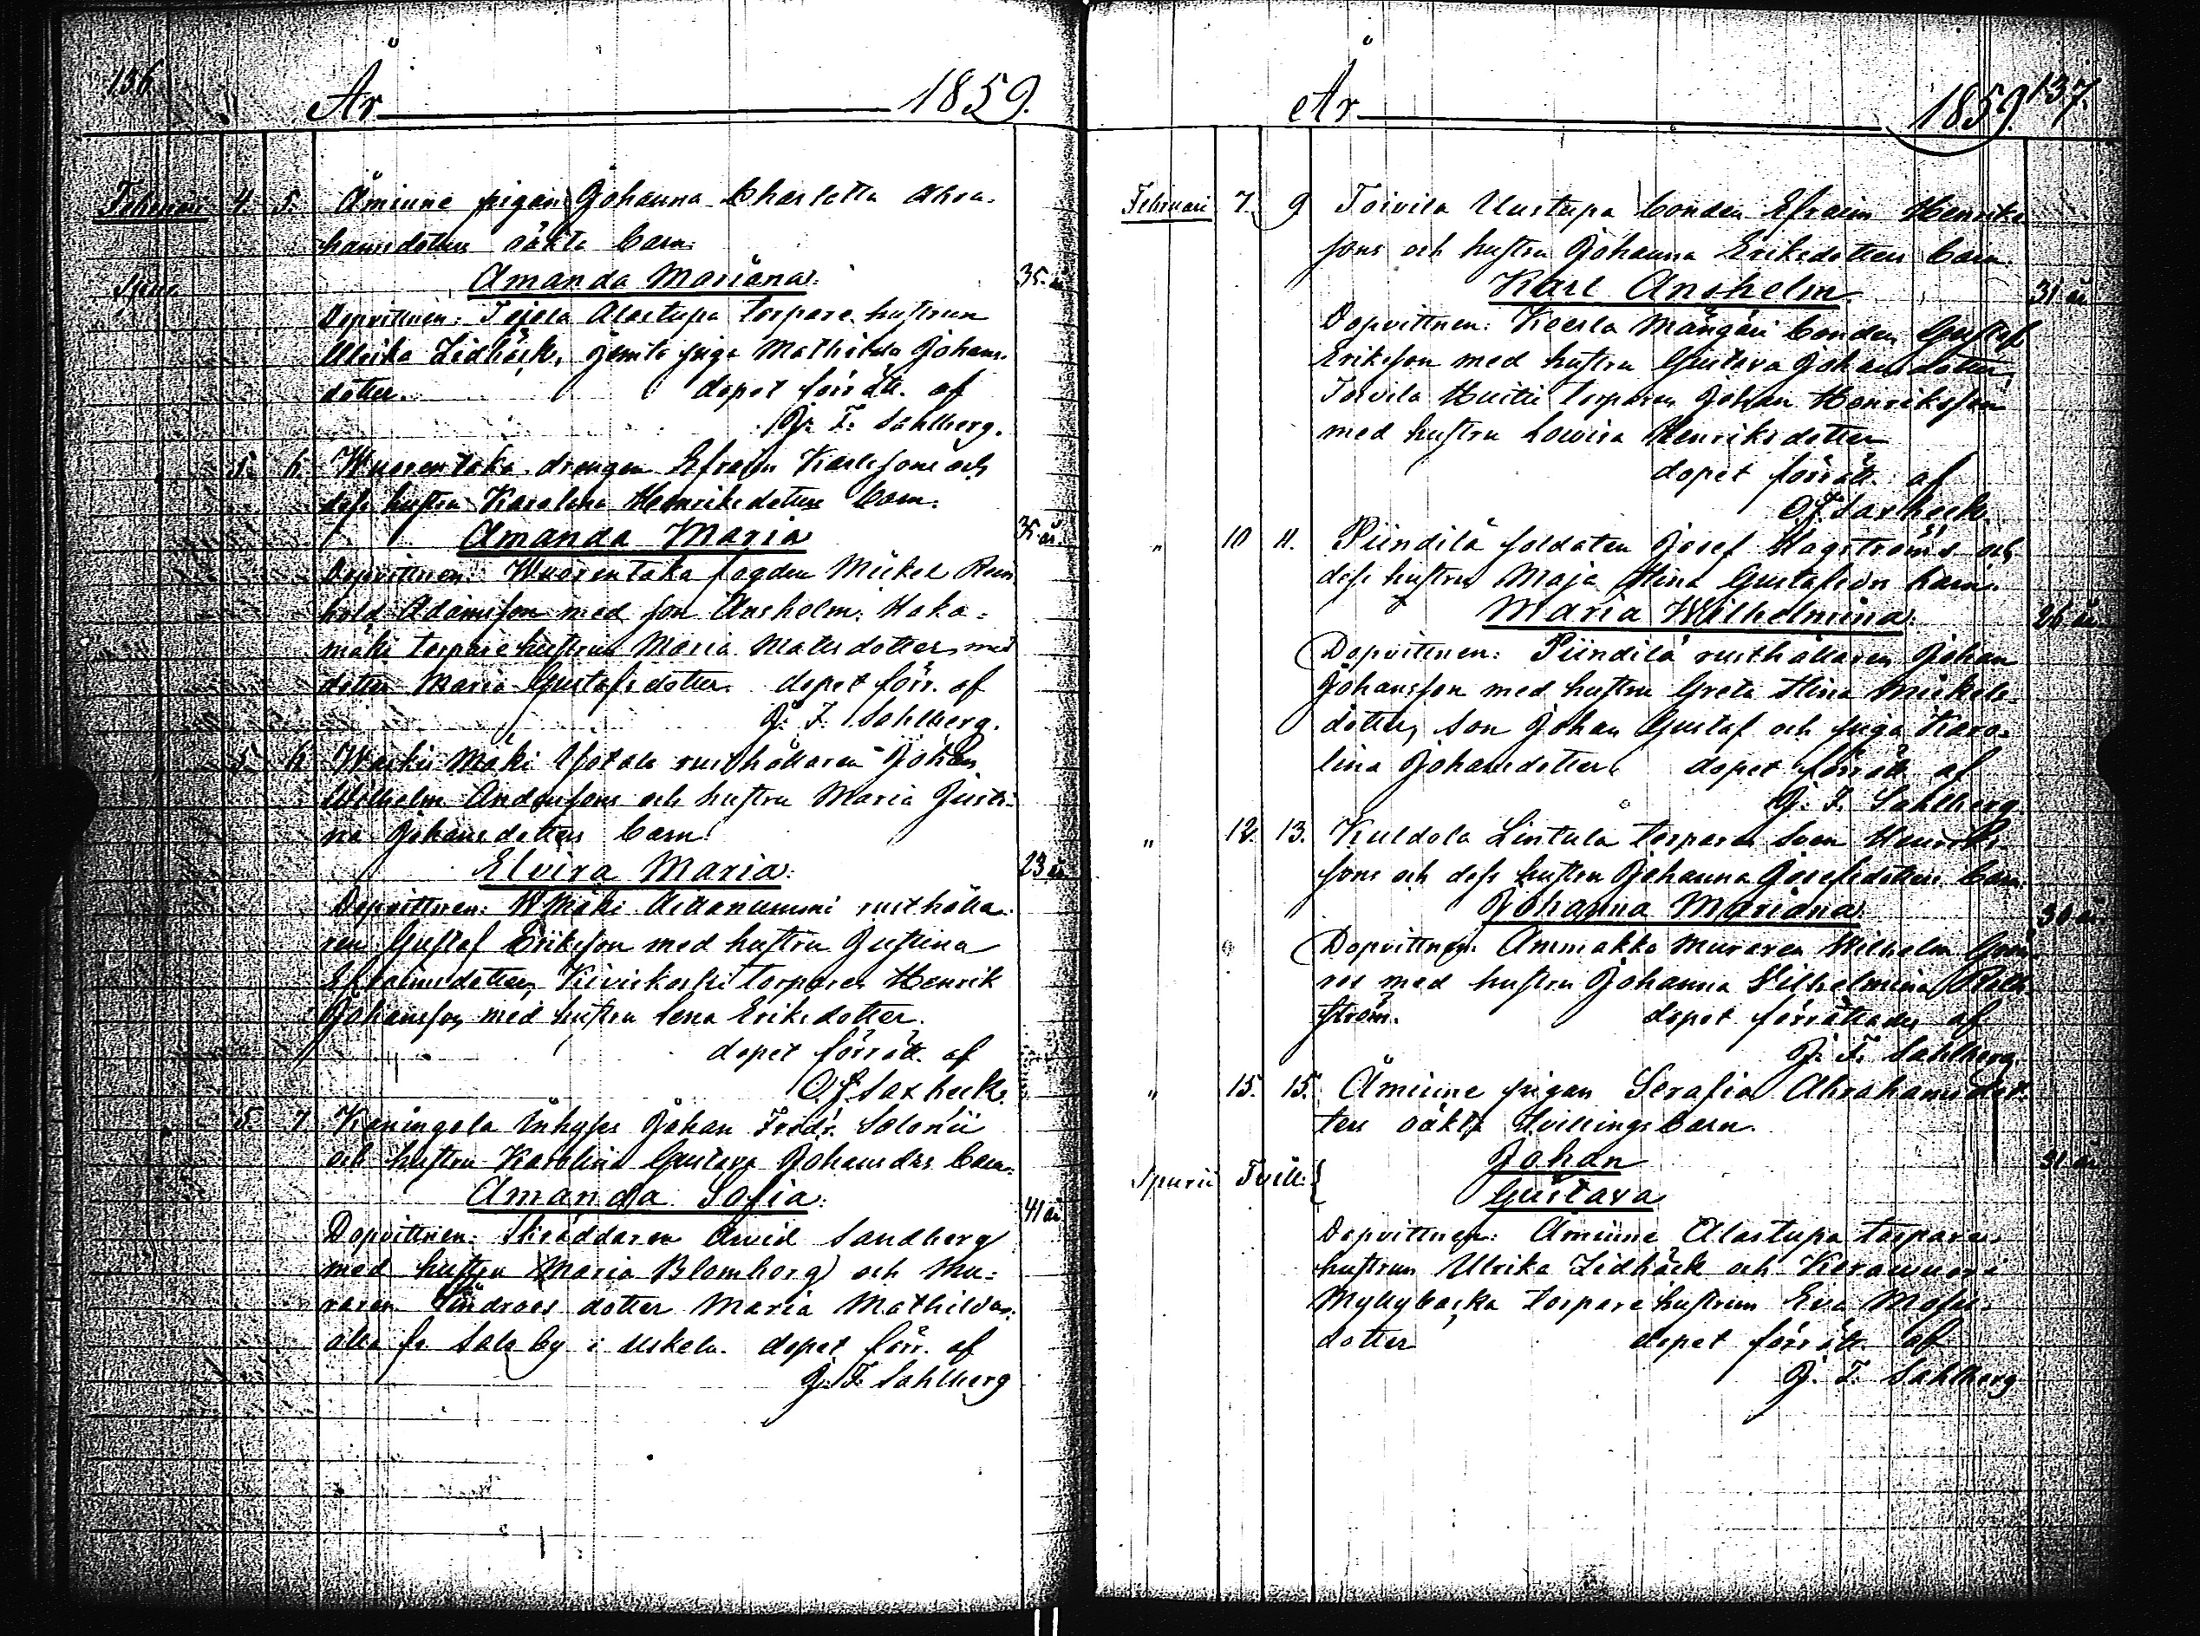 136
År 1859.
Februari 4. 5. Åminne pigan Johanna Charlotta Abra-
hamsdotters oäkta barn.
Amanda Mariana. 35 år
Dopvittnen: Tejola Alastupa torpare hustrun
Ulrika Lidbäck, jemte piga Mathilda Johans-
dotter. dopet förrätt. af
J. F. Sahlberg.
5. 6. Wuorentaka drengen Efraim Karlssons och
dess hustru Karolina Henriksdotters barn.
Amanda Maria 35 år.
Dopvittnen: Wuorentaka fogden Mickel Rein
hold Adamsson med son Anshelm. Haka-
mäki torpare hustrun Maria Matsdotter med
dotter Maria Gustafsdotter. dopet förr. af
J. F. Sahlberg.
5. 6. Mäki Yotala rusthållaren Johan
Wilhelm Anderssons och hustru Maria Justi-
na Johansdotters barn
Elvira Maria. 23 år
Dopvittnen: Mäki rusthålla-
ren Gustaf Eriksson med hustru Justina
Efraimsdotter, Kiviskoski torparen Henrik
Johansson med hustru Lena Eriksdotter.
dopet förrätt. af
O F Saxbeck.
5 7 Kaningola inhyses Johan Fredr. Salonii
och hustru Karolina Gustava Johansdrs barn.
Amanda Sofia. 41 år
Dopvittnen: Skräddaren Arvid Sandberg
med hustru (Maria Blomborg) och Mu-
raren dotter Maria Mathilda.
alla fr. Salo by i Uskela. dopet förr. af
J. F. Sahlberg
137.
År 1859.
Februari 7. 9 Toivila Uustupa bonden Efraim Henriks
sons och hustru Johanna Eriksdotters barn.
Karl Anshelm. 31 år
Dopvittnen: Keerla bonden Gustaf
Eriksson med hustru Gustava Johansdotter,
Toivila Huitti torparen Johan Henriksson
med hustru Lovisa Henriksdotter
dopet förrätt. af
O F Saxbeck.
" 10 11. Piindilä soldaten Josef Hagströms och
dess hustru Maja Stina Gustafsdrs barn.
Maria Wilhelmina. 26 år
Dopvittnen: Piindilä rusthållaren Johan
Johansson med hustru Greta Stina Mickels-
dotter, son Johan Gustaf och piga Karo-
lina Johansdotter. dopet förrätt. af
J. F. Sahlberg
" 12. 13. Kuldola Lintula torparen Sven Henriks-
sons och dess hustru Johanna Josefsdotters barn.
Johanna Mariana. 30 år
Dopvittnen. Ammakko muraren Wilhelm Grön
ros med hustru Johanna Wilhelmina Roth
ström. dopet förrättades af
J. F. Sahlberg.
" 15. 15. Åminne pigan Serafia Abrahamsdot-
ters oäkta tvillingsbarn.
Johan 31 år
Spurii Tvill. {
Gustava
Dopvittnen: Åminne Alastupa torpare-
hustrun Ulrika Lidbäck och Kerawuori
Myllybacka torpare hustrun Eva
dotter dopet förrätt. af
J. F. Sahlberg